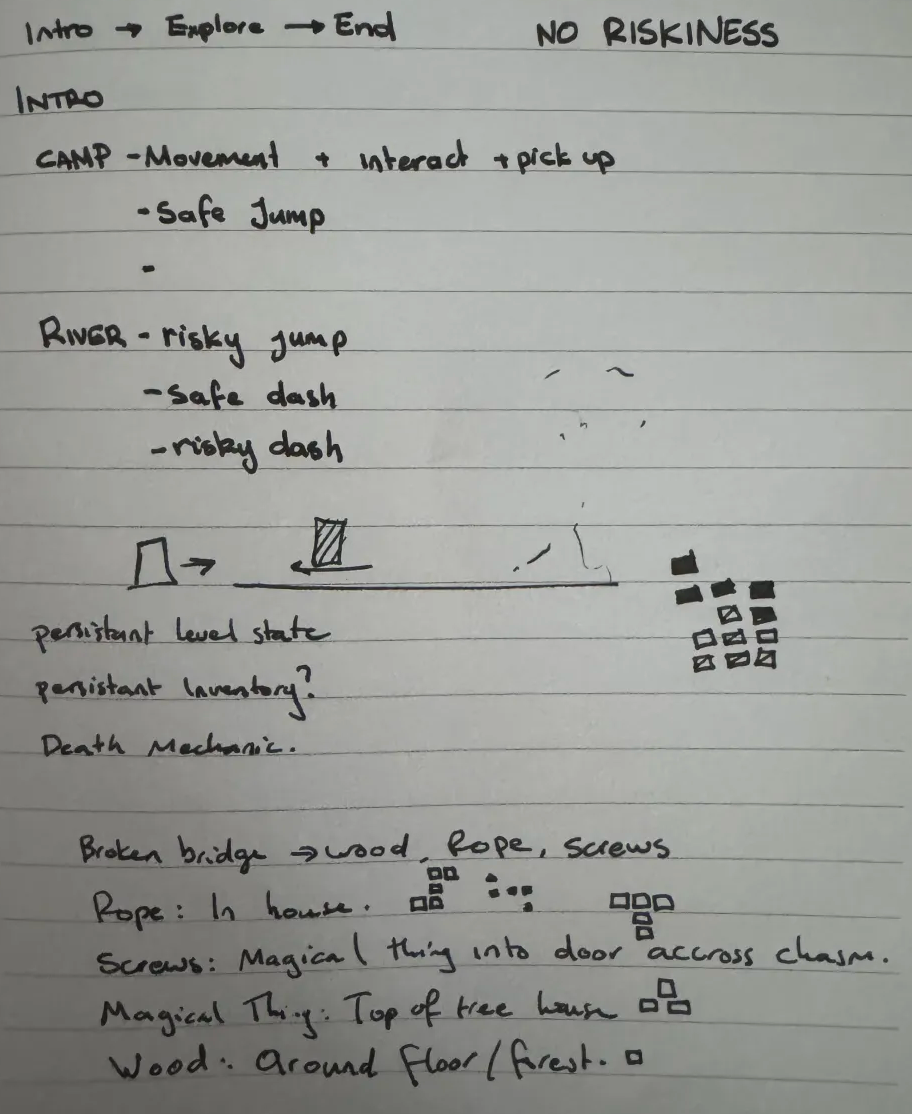 Intro → Explore → End NO RISKINESS
INTRO
CAMP - Movement + interact + pick up
- Safe Jump
-
RIVER - risky jump
- Safe dash
- risky dash
persistant level state
persistant inventory?
Death Mechanic.
Broken bridge → wood, Rope, screws
Rope: In house.
Screws: Magical thing into door accross chasm.
Magical Thing: Top of tree house
Wood: Around floor/forest.